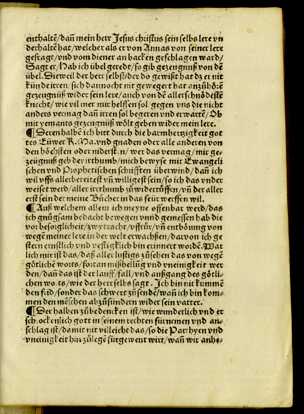 enthaltē/ dañ mein herr Jesus christus sein selbs lere vn
derhaltē hat/welcher als er von Annas von seiner lere
gefragt/vnd vom diener an backen geschlagen ward/
Sagt er/Hab ich übel geredt/so gib gezeugnuß von dē
übel. Dieweil der herr selbst/der do gewißt hat dz er nit
künd irren/ sich dannocht nit gewegert hat anzühörē
gezeugnüß wider sein lere/ auch von dē allerschnödestē
knecht/ wie vil mer mit helffen sol gegen vns die nicht
anders vermag dañ irren sol begeren vnd erwartē/ Ob
mir yemants gezeugnüß wölt geben wider mein lere.
¶ Derenhalbē ich bitt durch die barmhertzigkeit got
tes Ewer K. Ma. vnd gnaden oder alle andern von
den höchsten oder nidersten/ wer das vermag/ mir ge-
zeugnüß geb der irthumb/mich bewyse mit Ewangeli
schen vnd Prophetischen schrifften überwind/dañ ich
wil vffs allerbereitest vñ willigest sein/so ich das vnder
weiset werd/aller irrthumb zů widerrůffen/vñ der aller
erst sein der meine Bücher in das für werffen wil.
¶ Auß welchem allem ich meyne offenbar werd/das
ich gnůgsam bedacht bewegen vnnd gemessen hab die
vorbesorglicheit/zwytracht/vffrůr/vñ entbörung von
wegē meiner lere in der welt erwachsen/daruon ich ge
stern ernstlich vnd vestigklich bin erinnert wordē. Mir
lich mir ist das/ daß aller lustigs zůsehen das von wegē
götlichs worts/sött an mißhellūg vnd vneinigkeit wer
den/dañ das ist der lauff/fall/vnd außgang des götli-
chen worts/wie der herr selbs sagt. Ich bin nit kummē
den frid/sonder das schwert zůsendē/wañ ich bin kom-
men den mēschen abzůsündern wider sein vatter.
¶ Der halben zübedencken ist/wie wunderlich vnd er
schrockenlich gott in seinem rechten fürnemen vnd an-
schlag ist/damit nit villeicht das/so die Parthyen vnd
vneinigkeit hin zů legē fürgewent wirt/wañ wir anhe-